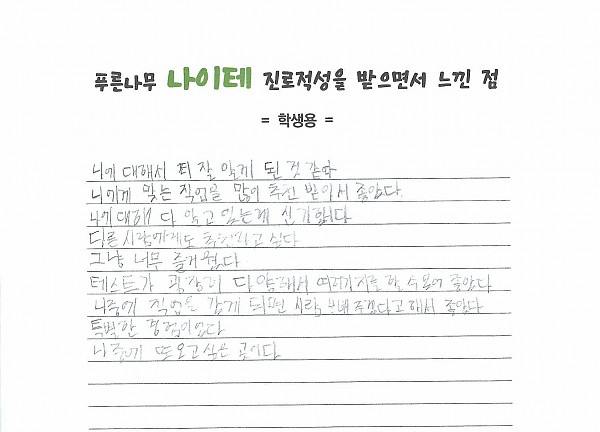 푸른나무 나이테 진로적성을 받으면서 느낀 점
= 학생용 =
나에 대해서 더 잘 알게 된 것 같아
나에게 맞는 직업을 많이 추천 받아서 좋았다.
나에 대해 다 알고 있는게 신기합니다
다른 사람에게도 추천하고 싶다
그냥 너무 즐거웠다
테스트가 굉장히 다양해서 여러가지를 할 수 있어 좋았다
나중에 직업을 갖게 되면 사람 보내주겠다고 해서 좋았다
특별한 경험이었다
나중에 또 오고 싶은 곳이다